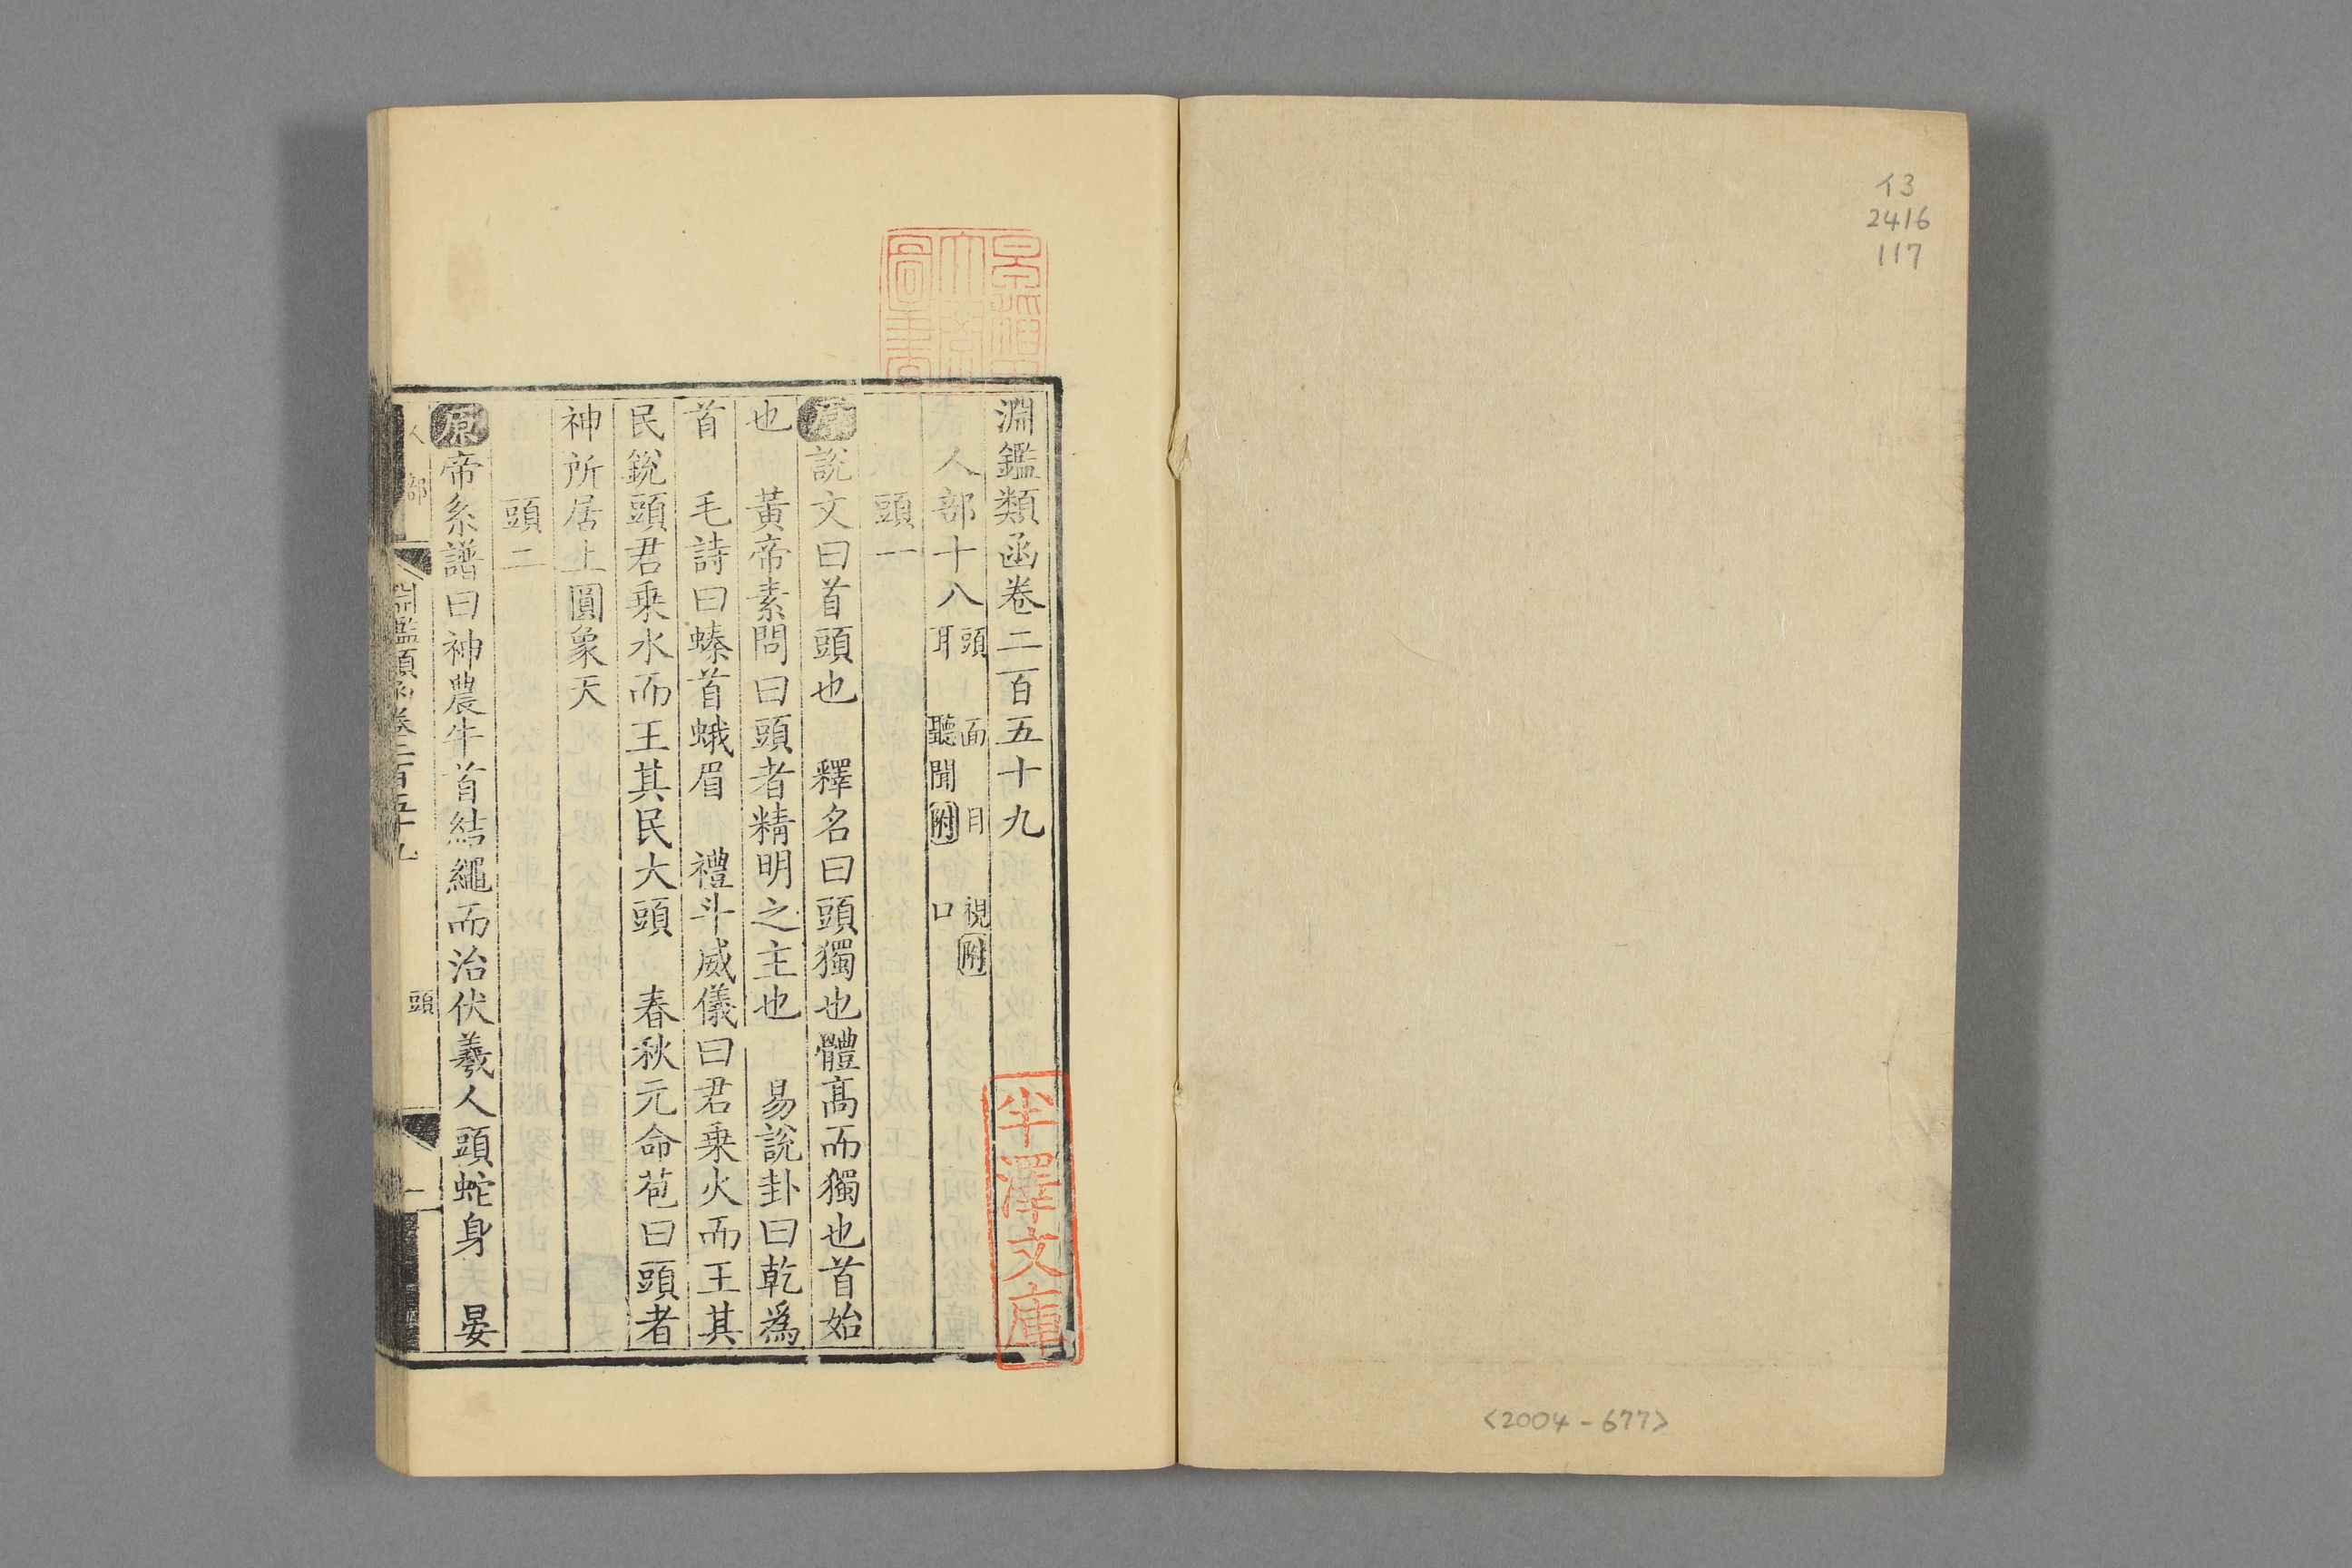 イ3
2416
117
<2004-677>
淵鑑類函卷二百五十九
人部十八
頭 面 目 視附
耳 聽聞附 口
頭一
原說文曰首頭也 釋名曰頭獨也體髙而獨也首始
也 黃帝素問曰頭者精明之主也 易說卦曰乾爲
首 毛詩曰螓首蛾眉 禮斗威儀曰君乗火而王其
民銳頭君乗水而王其民大頭 春秋元命苞曰頭者
神所居上圓象天
頭二
原帝系譜曰神農牛首結繩而治伏羲人頭蛇身 晏
人部
淵鑑類函卷二百五十九
頭
一
圖書
半澤文庫